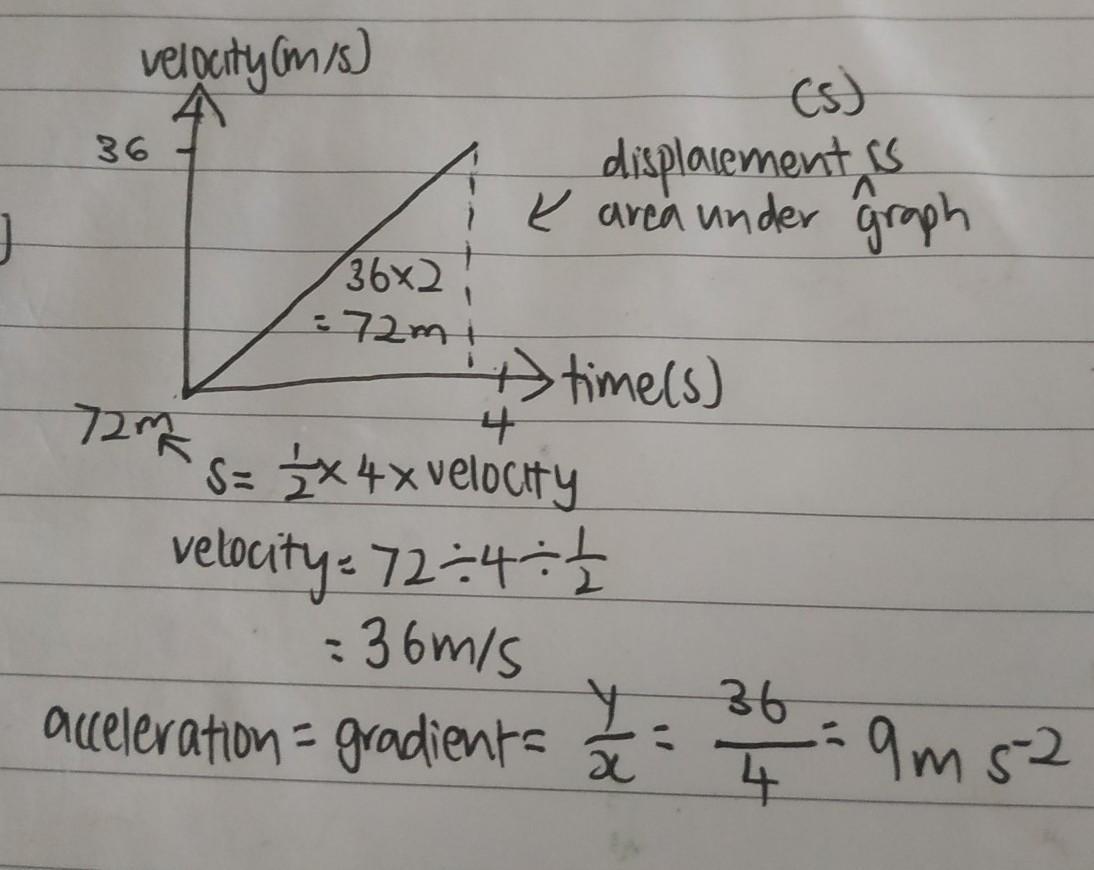 velocity(m/s)
(s)
36
displacement is
area under ^ graph
36×2
= 72m
time(s)
4
72m
s= 1/2 × 4 × velocity
velocity= 72÷4÷1/2
= 36m/s
acceleration = gradient = y/x = 36/4 = 9m s⁻²